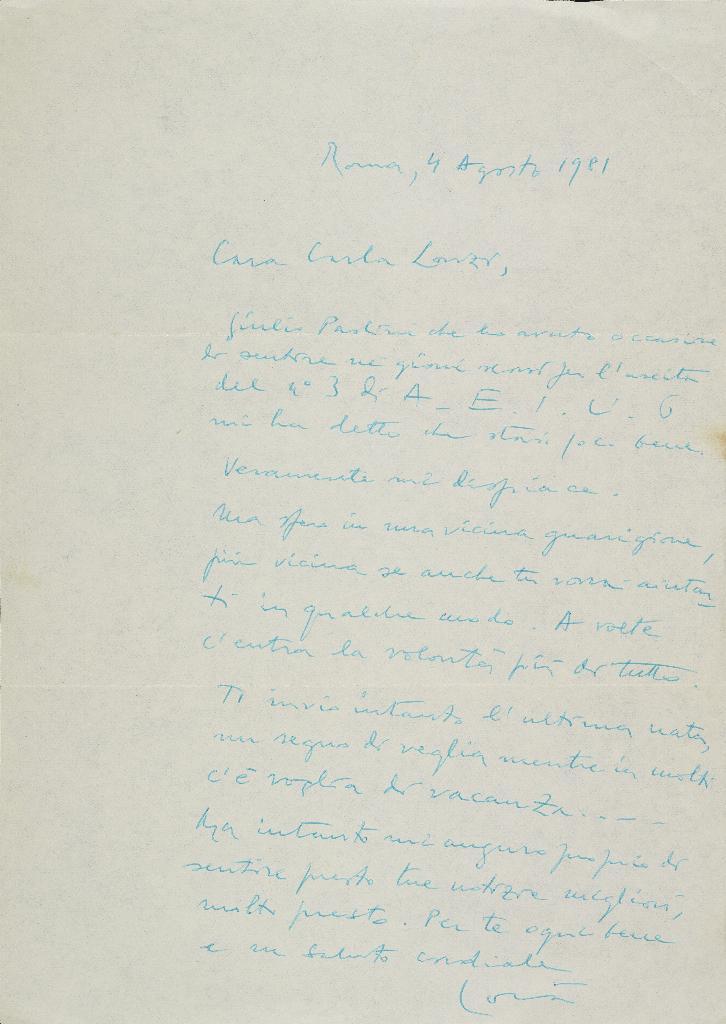 Roma, 4 Agosto 1981
Cara Carla Lonzi,
Giulio Paolini che ho avuto occasione
di sentire nei giorni scorsi per l'uscita
del n° 3 di A. E. I. U. O
mi ha detto che stavi poco bene.
Veramente mi dispiace.
Ma spero in una vicina guarigione,
più vicina se anche tu vorrai aiutar
ti in qualche modo. A volte
c'entra la volontà più di tutto.
Ti invio intanto l'ultima nata,
un segno di veglia mentre in molti
c'è voglia di vacanza....
Ma intanto mi auguro proprio di
sentire presto tue notizie migliori,
molto presto. Per te ogni bene
e un saluto cordiale